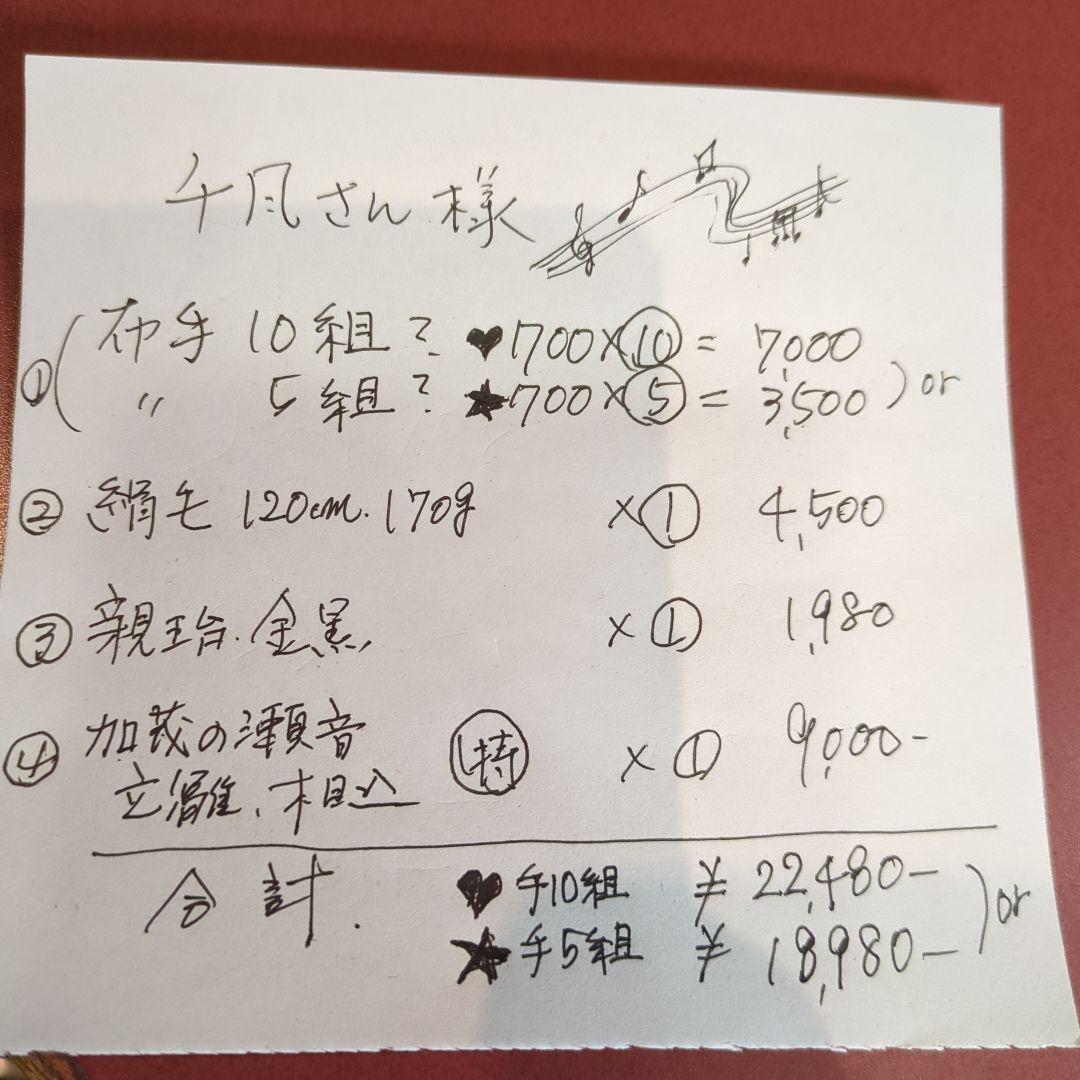 千風さん様
① ( 布手 10組? ♥700×⑩ = 7,000
〃 5組? ★700×⑤ = 3,500 ) or
② 絹毛 120cm. 170g ×① 4,500
③ 親王台. 金黒 ×① 1,980
④ 加茂の瀬音 ㊕ ×① 9,000-
立雛、木目込
合計. ♥ 手10組 ¥22,480-
★ 手5組 ¥18,980- ) or